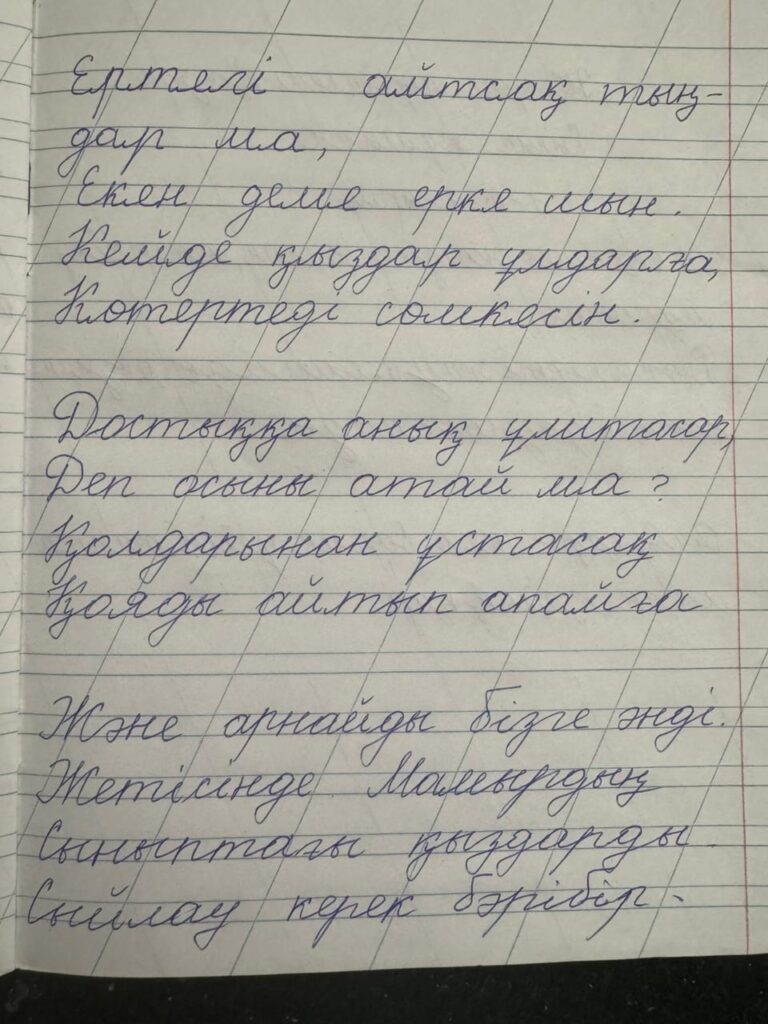 Ертегі айтсақ тың-
дар ма,
Екен деме ерке шын.
Кейде қыздар ұлдарға,
Көтертеді сөмкесін.
Достыққа анық ұлтасар,
Деп осыны атай ма?
Қолдарынан ұстасақ
Қояды айтып апайға
Және арнайды бізге әнді.
Жетісінде Мамырдың
Сыныптағы қыздарды
Сыйлау керек бәрібір.